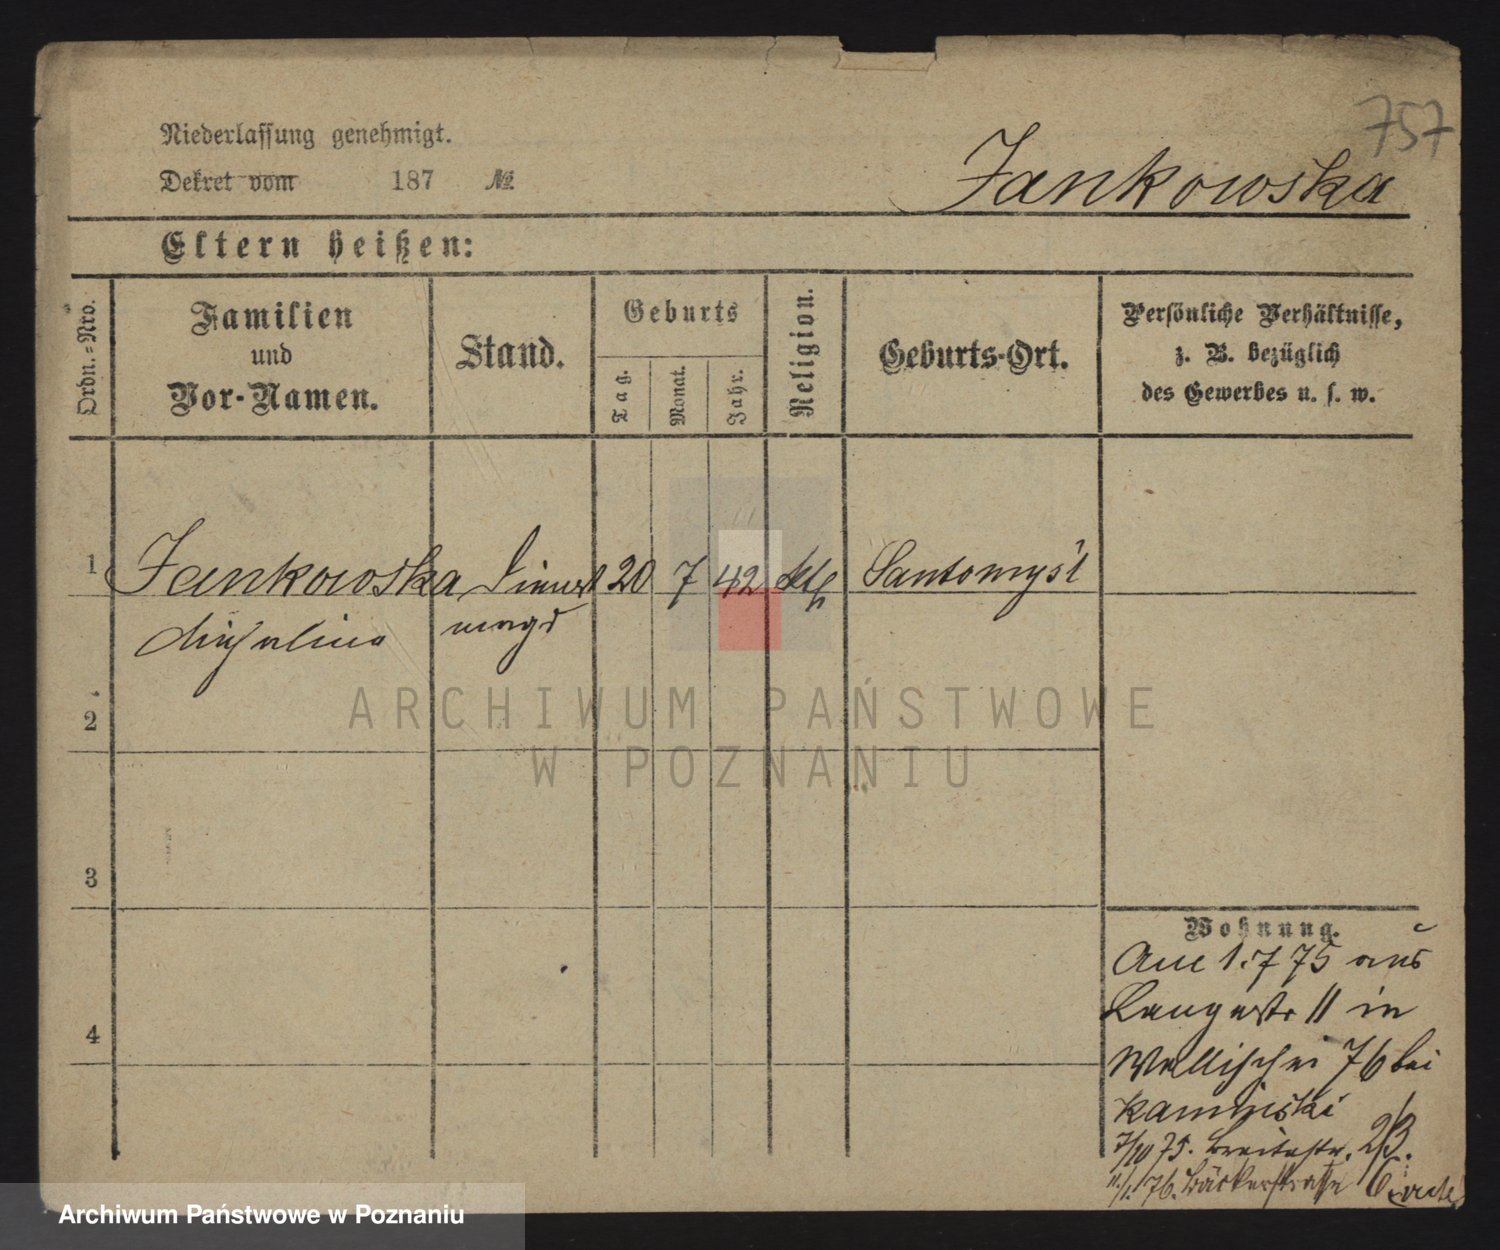 757
Niederlassung genehmigt.
Dekret vom 187 №
Jankowska
Eltern heißen:
Ordn.-Nro.
Familien
und
Vor-Namen.
Stand.
Geburts
Tag.
Monat.
Jahr.
Religion.
Geburts-Ort.
Persönliche Verhältnisse,
z. B. bezüglich
des Gewerbes u. s. w.
1 Jankowska Dienst 20 7 42 kth Santomyśl
Michalina magd
2
3
4
Wohnung.
Am 1.7 75 aus
Langestr 11 in
Wallischei 76 bei
Kaminski
7/10 75. Breitestr. 23.
11/1. 76. Bäckerstraße 6
ARCHIWUM PAŃSTWOWE
W POZNANIU
Archiwum Państwowe w Poznaniu